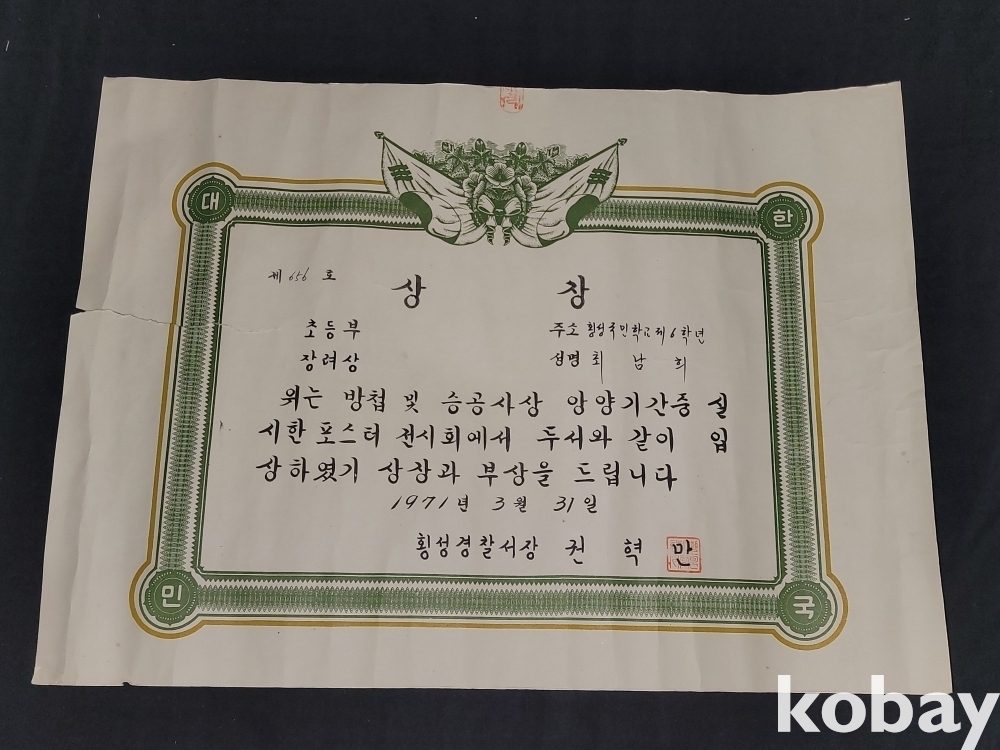 대 한
제 656 호
상 장
초등부 주소 횡성국민학교 제6학년
장려상 성명 최 남 희
위는 방첩 및 승공사상 앙양기간중 실
시한 포스터 전시회에서 두서와 같이 입
상하였기 상장과 부상을 드립니다
1971년 3월 31일
횡성경찰서장 권 혁 만
민 국
kobay